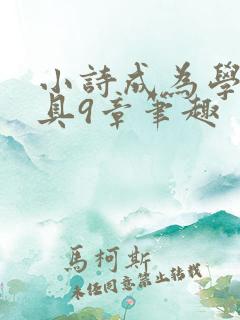 小詩成為學
具9章筆趣
馬柯斯
未任同意禁止转载